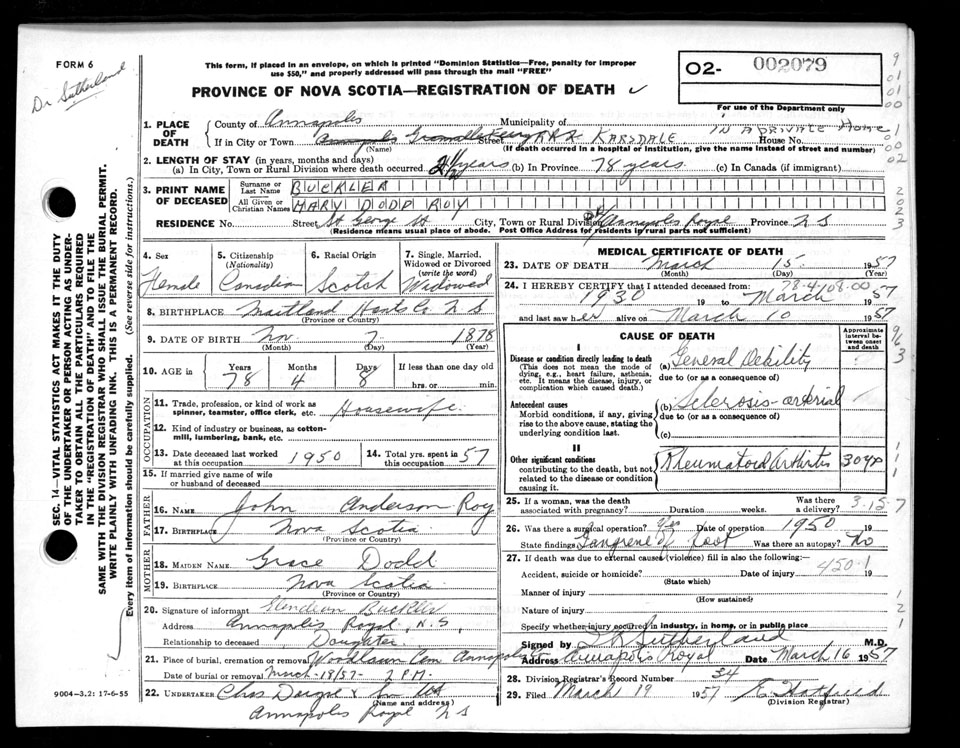 FORM 6
Dr Sutherland
This form, if placed in an envelope, on which is printed "Dominion Statistics—Free, penalty for improper
use $50," and properly addressed will pass through the mail "FREE"
PROVINCE OF NOVA SCOTIA—REGISTRATION OF DEATH ✓
O2- 002079
For use of the Department only
9 01 01 00
1. PLACE OF DEATH
County of Annapolis Municipality of
in a private Home
If in City or Town Annapolis Granville Ferry R.R.2 Street KARSDALE House No.
(Name) (If death occurred in a hospital or institution, give the name instead of street and number)
1 00 02
2. LENGTH OF STAY (in years, months and days)
(a) In City, Town or Rural Division where death occurred 2 1/2 years (b) In Province 78 years. (c) In Canada (if immigrant)
3. PRINT NAME OF DECEASED
Surname or Last Name BUCKLER
All Given or Christian Names MARY DODD ROY
2 02 3
RESIDENCE No. Street St George St City, Town or Rural Division Annapolis Royal Province N S
(Residence means usual place of abode. Post Office Address for residents in rural parts not sufficient)
4. Sex Female
5. Citizenship (Nationality) Canadian
6. Racial Origin Scotch
7. Single, Married, Widowed or Divorced (write the word) Widowed
8. BIRTHPLACE Maitland Hants Co N S
(Province or Country)
9. DATE OF BIRTH Nov. 7 1878
(Month) (Day) (Year)
10. AGE in Years 78 Months 4 Days 8 If less than one day old
hrs. or min.
OCCUPATION
11. Trade, profession, or kind of work as spinner, teamster, office clerk, etc. Housewife.
12. Kind of industry or business, as cotton-mill, lumbering, bank, etc.
13. Date deceased last worked at this occupation 1950 14. Total yrs. spent in this occupation 57
15. If married give name of wife or husband of deceased
FATHER
16. NAME John Anderson Roy
17. BIRTHPLACE Nova Scotia
(Province or Country)
MOTHER
18. MAIDEN NAME Grace Dodd
19. BIRTHPLACE Nova Scotia
(Province or Country)
20. Signature of informant Buckler
Address Annapolis Royal, N.S,
Relationship to deceased Daughter
21. Place of burial, cremation or removal Woodlawn Cem Annapolis
Date of burial or removal March-18/57- 2 P.M.
22. UNDERTAKER Chas
(Name and address)
Annapolis Royal N S
MEDICAL CERTIFICATE OF DEATH
23. DATE OF DEATH March 15. 1957
(Month) (Day) (Year)
24. I HEREBY CERTIFY that I attended deceased from:
78-4/08-00
1930 19 to March 1957
and last saw her alive on March 10 1957
CAUSE OF DEATH
Approximate interval between onset and death
I
Disease or condition directly leading to death
(This does not mean the mode of dying, e.g., heart failure, asthenia, etc. It means the disease, injury, or complication which caused death.)
(a) General Debility
due to (or as a consequence of)
Antecedent causes
Morbid conditions, if any, giving rise to the above cause, stating the underlying condition last.
(b) Sclerosis-arterial
due to (or as a consequence of)
(c)
II
Other significant conditions
contributing to the death, but not related to the disease or condition causing it.
Rheumatoid Arthritis 30 yr
25. If a woman, was the death associated with pregnancy? Duration weeks. Was there a delivery?
3-15-7
26. Was there a surgical operation? Yes Date of operation 1950 19
State findings Gangrene of Foot Was there an autopsy? No
27. If death was due to external causes (violence) fill in also the following:—
Accident, suicide or homicide? Date of injury 19
(State which)
450-1
Manner of injury
(How sustained)
Nature of injury
Specify whether injury occurred in industry, in home, or in public place
Signed by Sutherland M.D.
Address Annapolis Royal Date March 16 1957
28. Division Registrar's Record Number 34
29. Filed March 19 1957 Hatfield
(Division Registrar)
SEC. 14—VITAL STATISTICS ACT MAKES IT THE DUTY
OF THE UNDERTAKER OR PERSON ACTING AS UNDERTAKER TO OBTAIN ALL THE PARTICULARS REQUIRED
IN THE "REGISTRATION OF DEATH" AND TO FILE THE
SAME WITH THE DIVISION REGISTRAR WHO SHALL ISSUE THE BURIAL PERMIT.
WRITE PLAINLY WITH UNFADING INK. THIS IS A PERMANENT RECORD.
Every item of information should be carefully supplied. (See reverse side for instructions.)
9004-3.2: 17-6-55